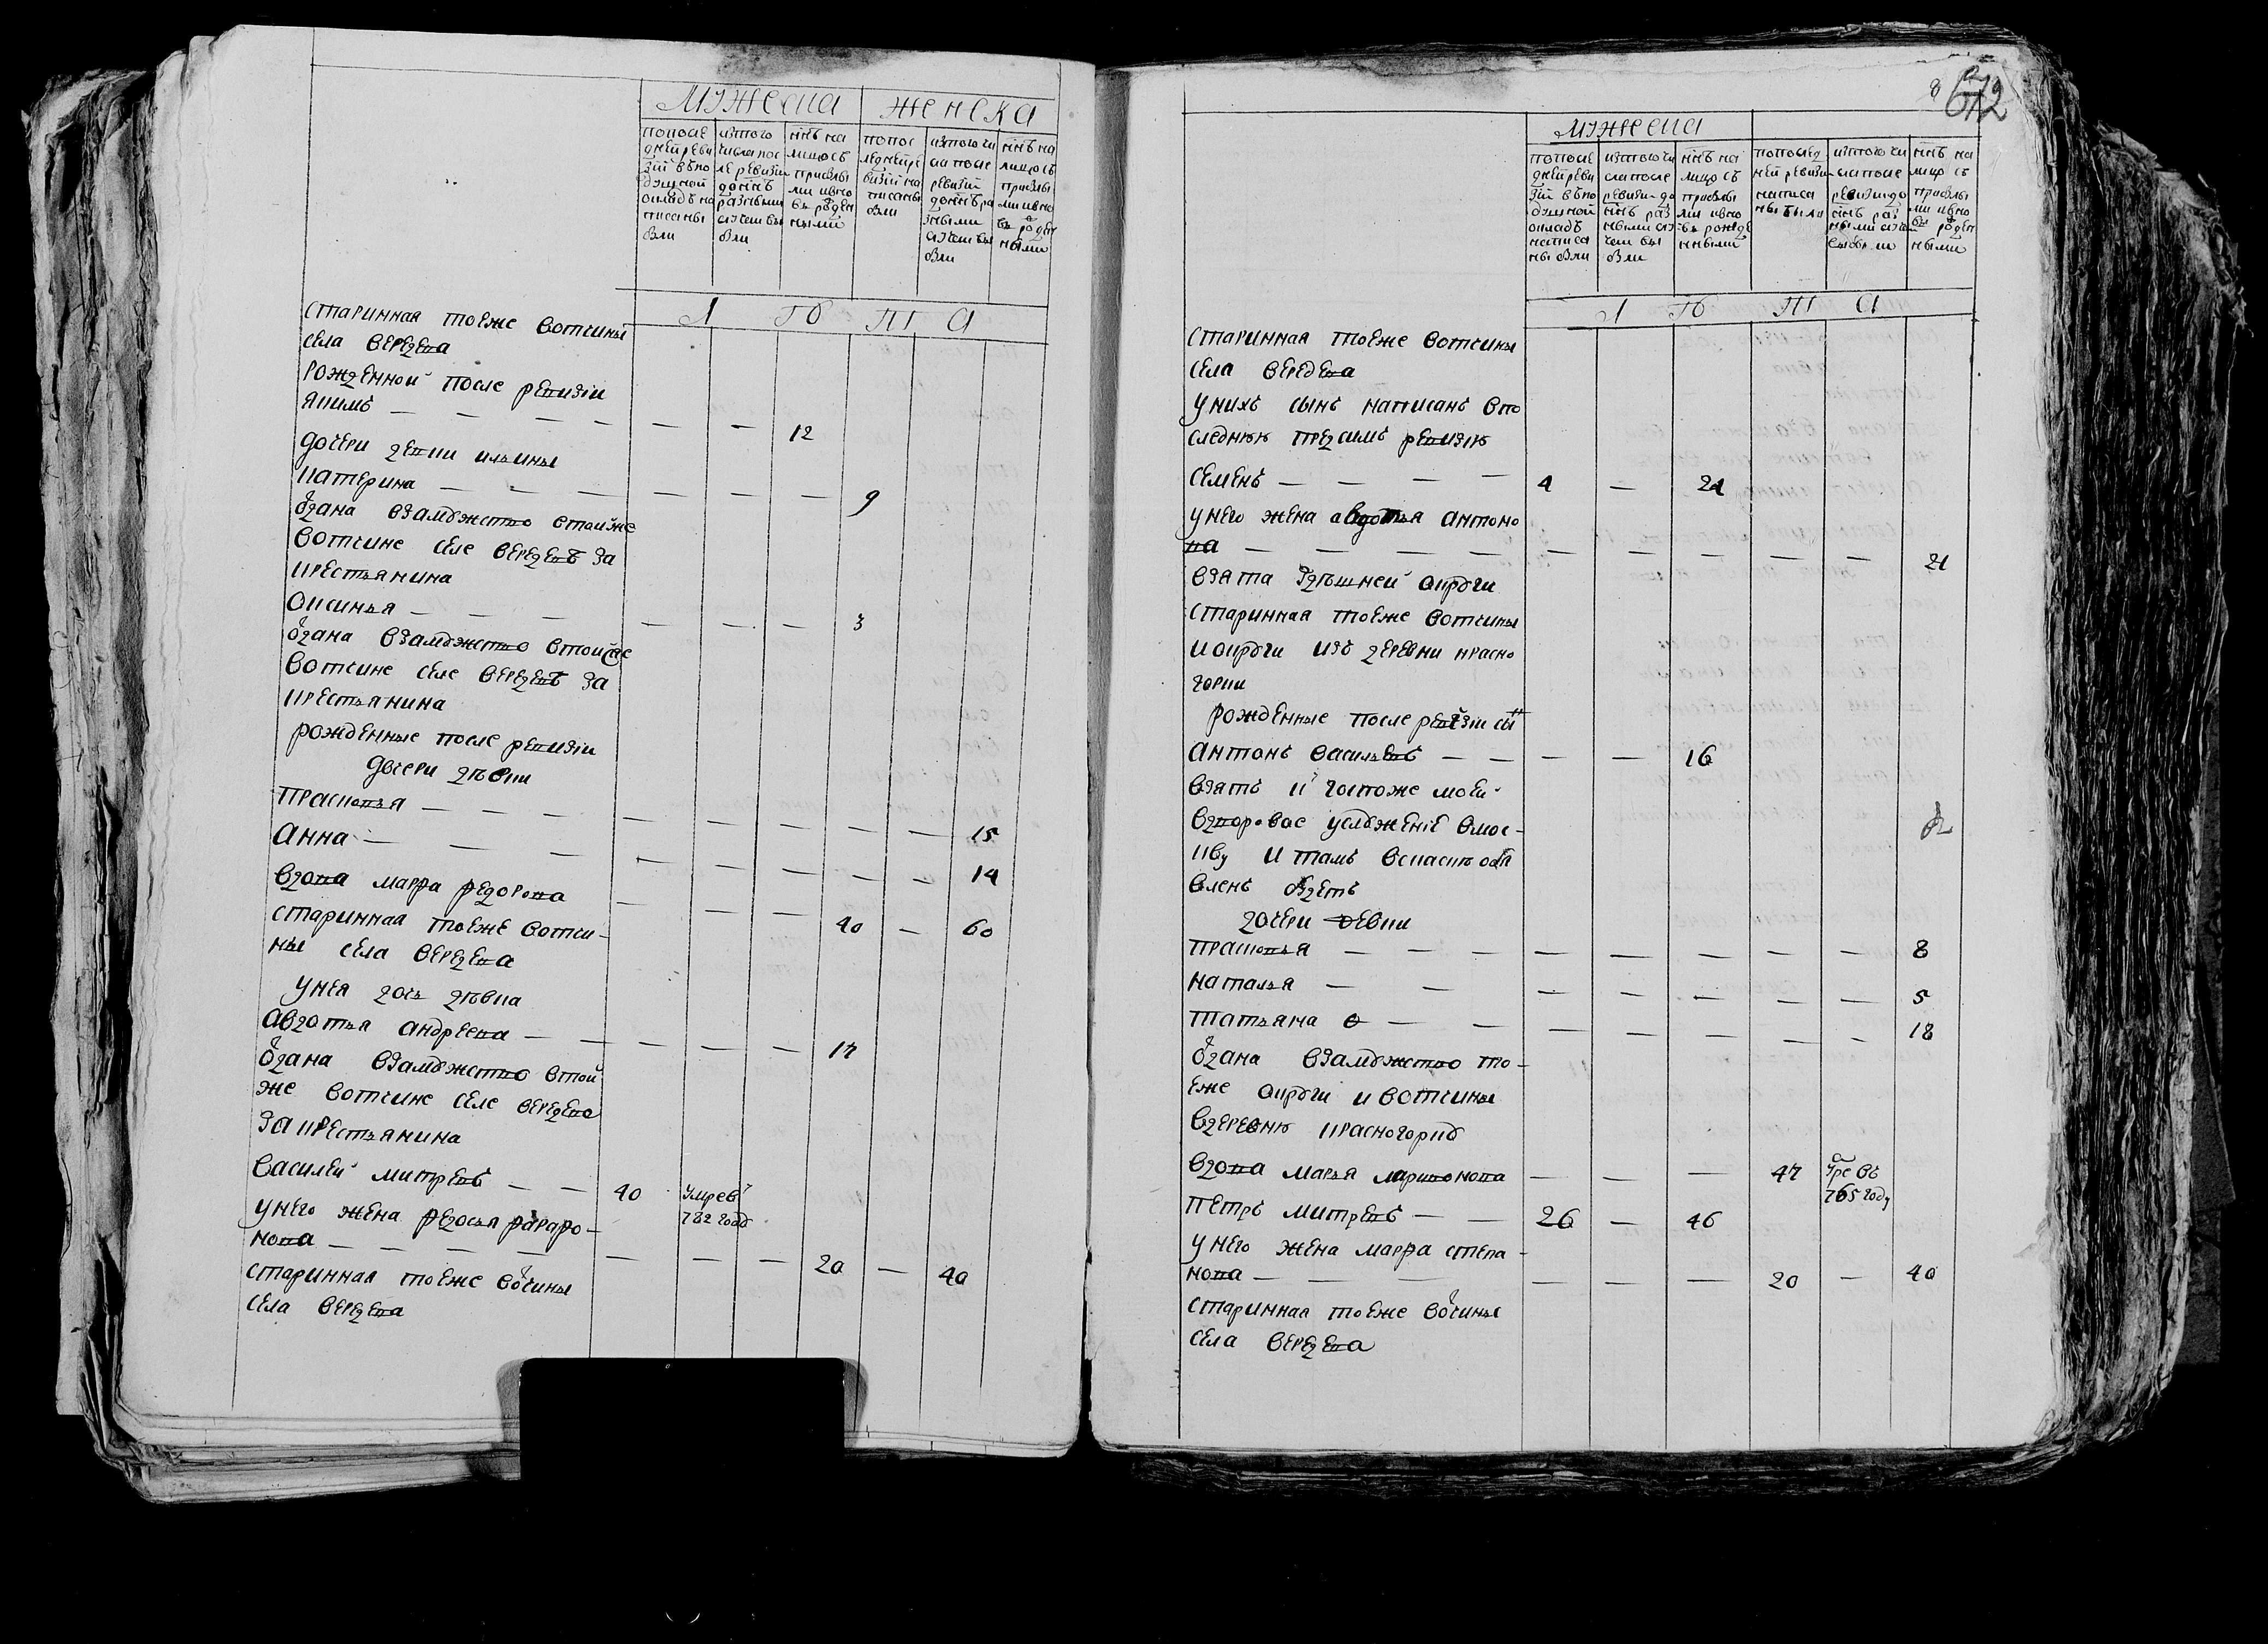 мужеска
женска
по после
дней реви
зіи въ по
душной
окладъ на
писаны
были
изтого
числа пос
ле ревизіи
до ннѣ
разными
случаи вы
были
ннѣ на
лицо съ
прибылы
ми и вно
вь рожден
ными
по пос
ледней ре
визіи на
писаны
были
изтого чи
сла после
ревизіи
до ннѣ ра
зными
случаи вы
были
ннѣ на
лицо съ
прибылы
ми и вно
вь рожден
ными
Л Ѣ Т А
старинная тоеже вотчины
села вередева
рожденной после ревизіи
якимъ — — — — — — 12
дочери девки ильины
катерина — — — — — — 9
отдана взамужство втойже
вотчине селе вередевѣ за
крестьянина
оксинья — — — — — — 3
отдана взамужство втойже
вотчине селе вередевѣ за
крестьянина
рожденные после ревизіи
дочери дѣвки
прасковья — — — — — — — — 15
анна — — — — — — — — 14
вдова марфа федорова — — — 40 — 60
старинная тоеже вотчи-
ны села вередева
унея дочь дѣвка
авдотья андреева — — — — — 17
отдана взамужство втой
же вотчине селе вередеве
за крестьянина
василей митревъ — — 40 умре въ
782 году
унего жена федосья фарафо-
нова — — — — — — — 20 — 40
старинная тоеже вотчины
села вередева
8 612
мужеска
по после
дней реви
зіи въ по
душной
окладъ
написа
ны были
изтого чи
сла после
ревизіи до
ннѣ раз
ными слу
чаи вы
были
ннѣ на
лицо съ
прибылы
ми и вно
вь рожде
нными
по послед
ней ревизіи
написа
ны были
изтого чи
сла после
ревизіи до
ннѣ раз
ными слу
ннѣ на
лицо съ
прибылы
ми и вно
вь рожден
ными
Л Ѣ Т А
старинная тоеже вотчины
села вередева
унихъ сынъ написанъ впо
следнюю предсимъ ревизію
семенъ — — — — 4 — 24
унего жена авдотья антоно
ва — — — — — — — — — 21
взята здѣшней округи
старинная тоеже вотчины
и округи изъ деревни красно
горки
рожденные после ревизіи
антонъ васильевъ — — — — 16
взятъ к госпоже моей
вдворовое услуженіе вмос-
кву и тамъ всказке объя
вленъ будетъ
дочери девки
прасковья — — — — — — — — 8
наталья — — — — — — — — 5
татьяна — — — — — — — 18
отдана взамужство то-
еже округи и вотчины
вдеревню красногорку
вдова марья ларионова — — — 47 умре въ
765 году
петръ митревъ — — 26 — 46
унего жена марфа степа-
нова — — — — — — 20 — 40
старинная тоеже вотчины
села вередева